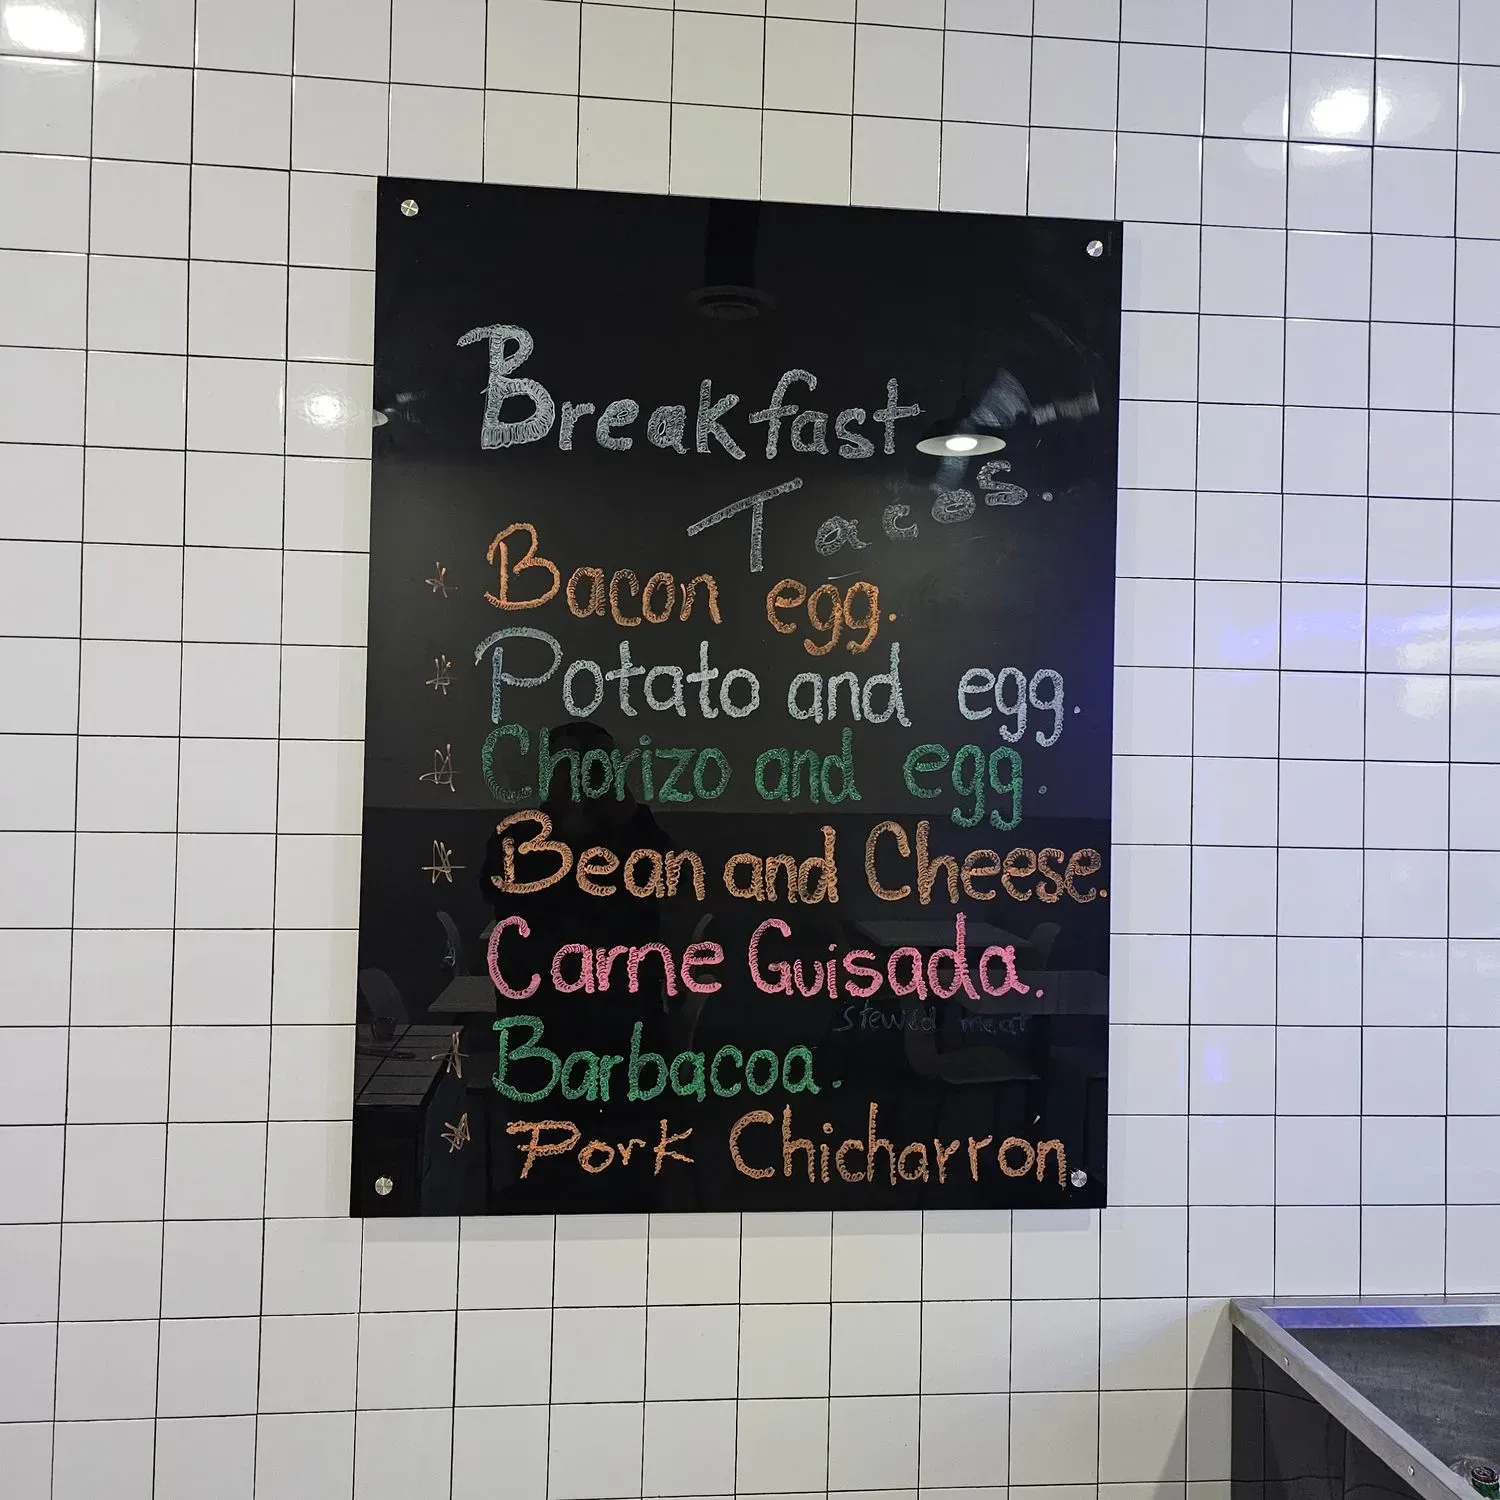 Breakfast
Tacos.
* Bacon egg.
* Potato and egg.
* Chorizo and egg.
* Bean and Cheese.
Carne Guisada.
stewed meat
* Barbacoa.
* Pork Chicharrón